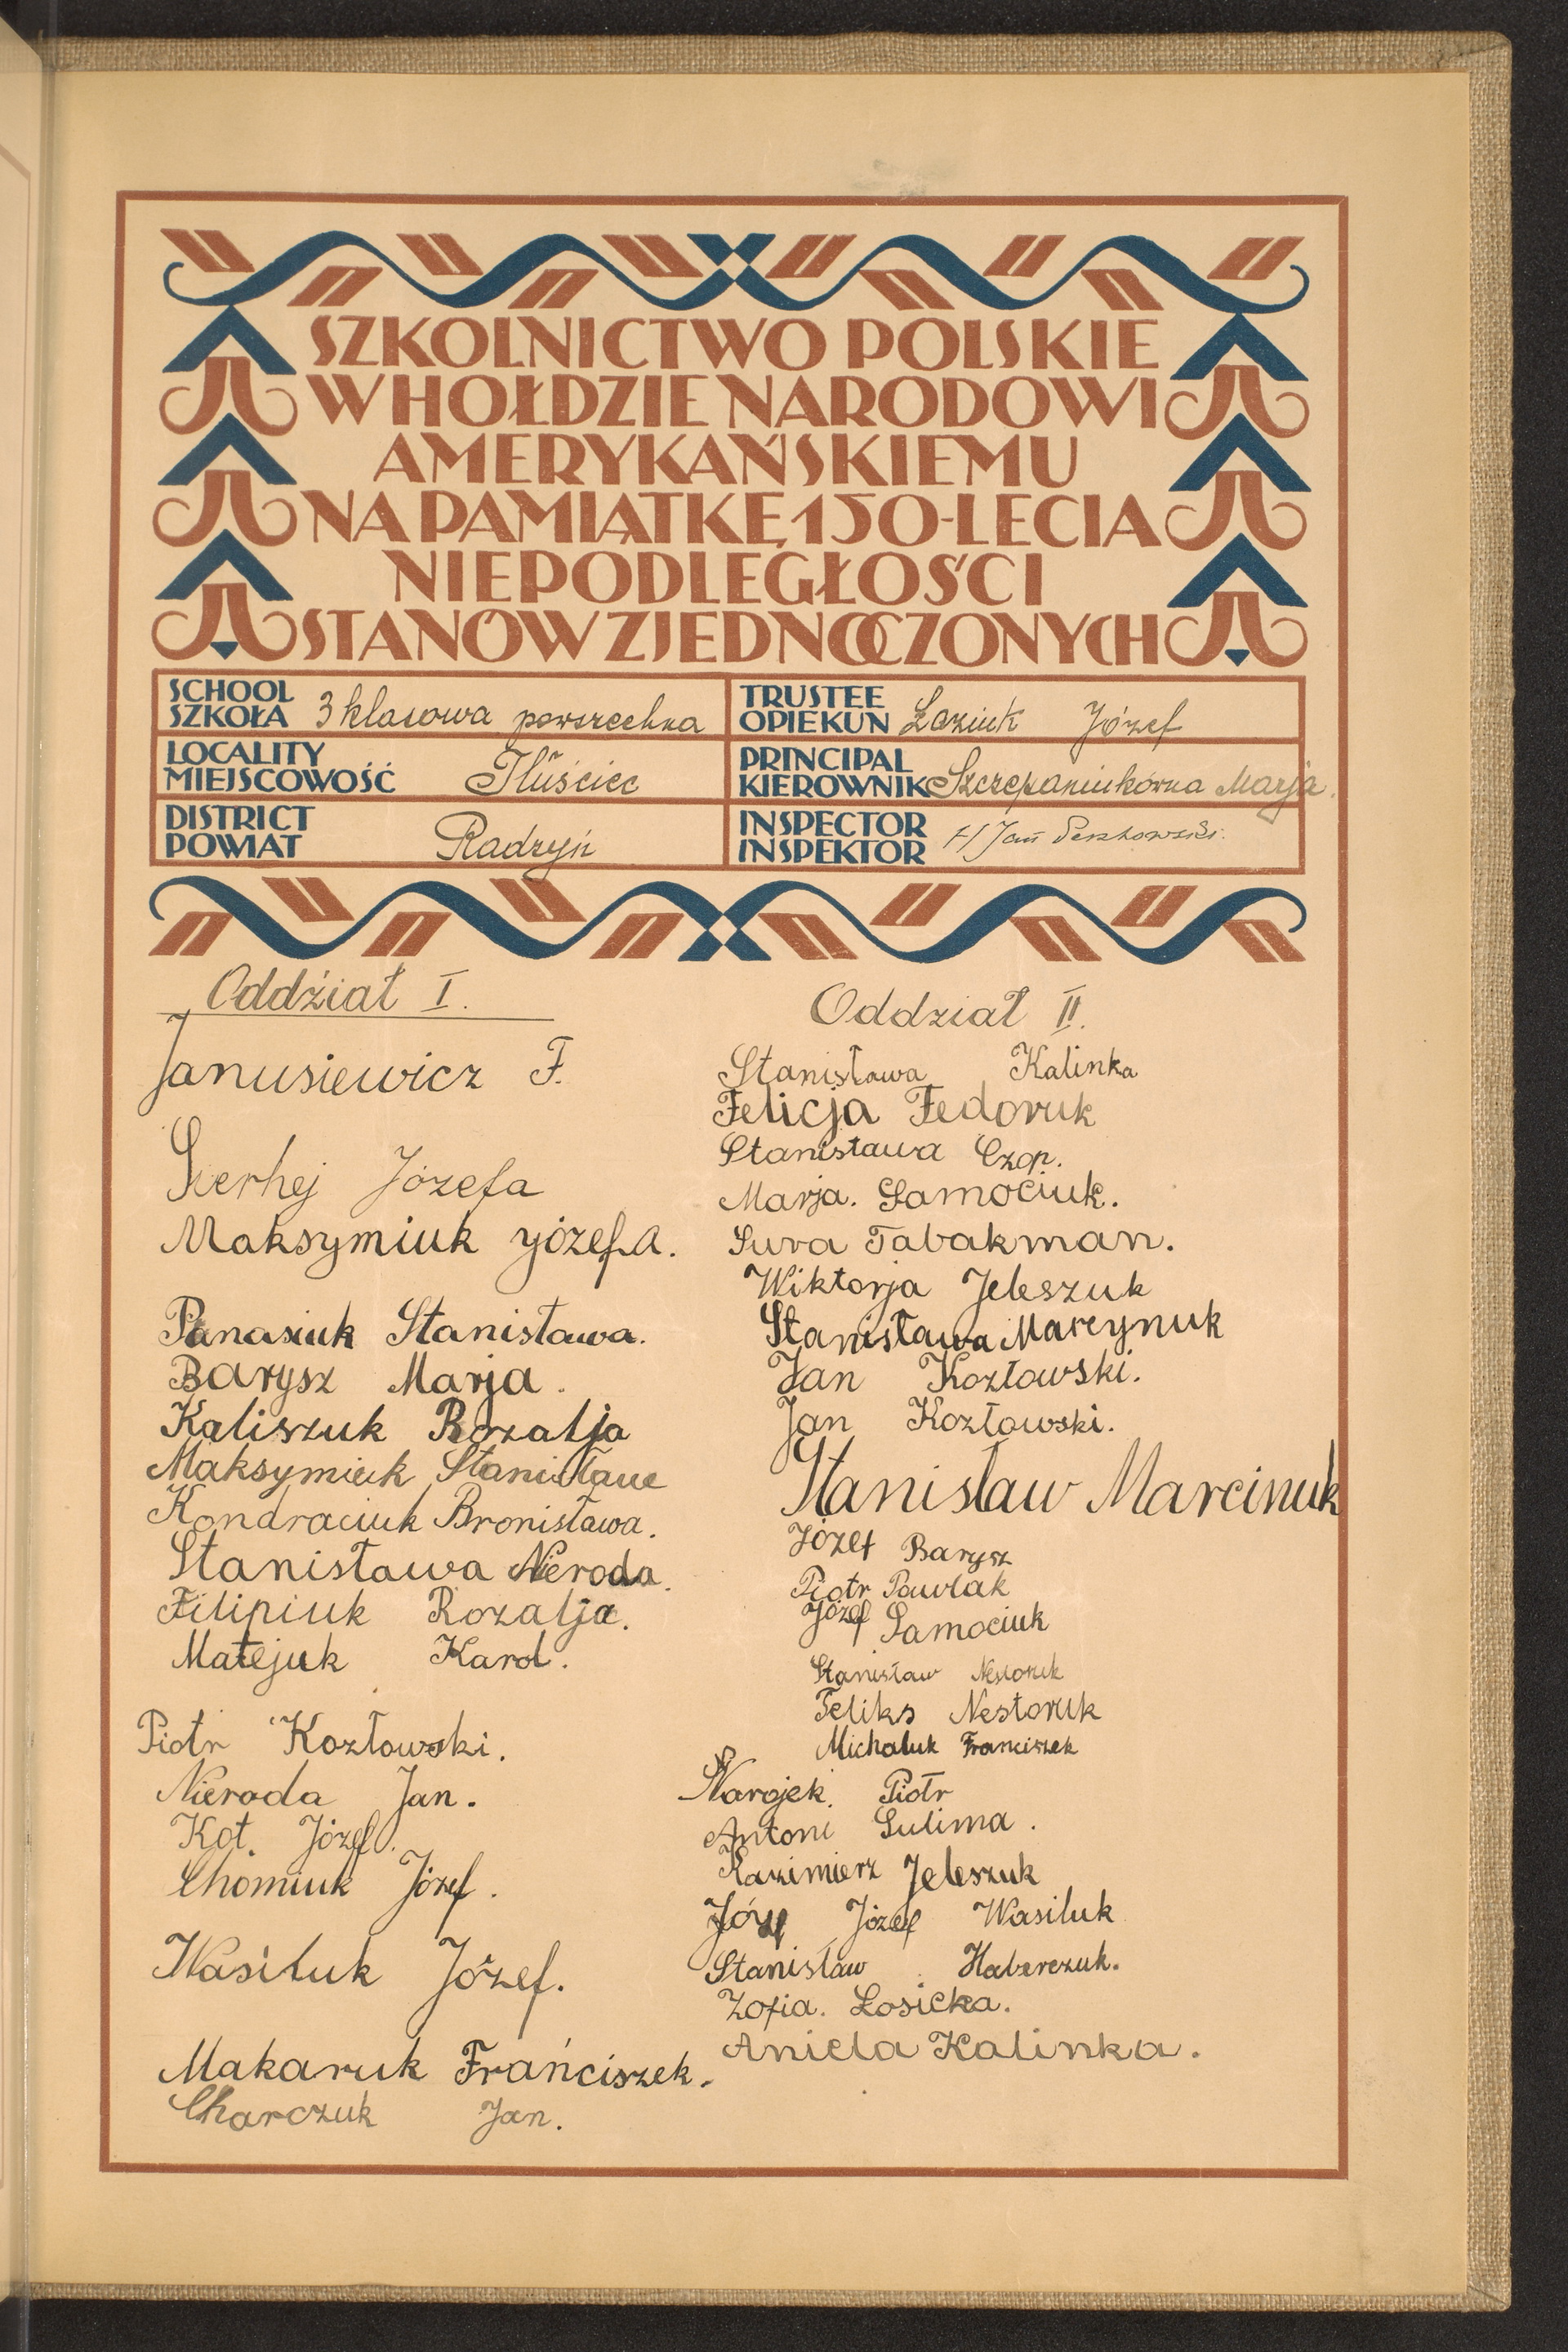 SZKOLNICTWO POLSKIE
W HOŁDZIE NARODOWI
AMERYKAŃSKIEMU
NA PAMIĄTKĘ 150-LECIA
NIEPODLEGŁOŚCI
STANÓW ZJEDNOCZONYCH
SCHOOL
SZKOŁA 3 klasowa powszechna
LOCALITY
MIEJSCOWOŚĆ Tłuściec
DISTRICT
POWIAT Radzyń
TRUSTEE
OPIEKUN Łaziuk Józef
PRINCIPAL
KIEROWNIK Szczepaniukówna Marja.
INSPECTOR
INSPEKTOR Jan
Oddźiał I.
Janusiewicz F.
Józefa
Maksymiuk józefa.
Panasiuk Stanisława.
Barysz Marja.
Kaliszuk Rozalja
Maksymiuk Stanisława
Kondraciuk Bronisława.
Stanisława Nieroda.
Filipiuk Rozalja.
Matejuk Karol.
Piotr Kozłowski.
Nieroda Jan.
Kot. Józef.
Chomiuk Józef.
Wasiluk Józef.
Makaruk Frańciszek.
Charczuk Jan.
Oddział II.
Stanisława Kalinka
Felicja Fedoruk
Stanisława Czop.
Marja. Samociuk.
Sura Tabakman.
Wiktorja Jeleszuk
Stanisława Marcynuk
Jan Kozłowski.
Jan Kozłowski.
Stanisław Marcinuk
Józef Barysz
Piotr Pawlak
Józef Samociuk
Stanisław Nestoruk
Feliks Nestoruk
Michaluk Franciszek
Narojek. Piotr
Antoni Sulima.
Kazimierz Jeleszuk
Józef Józef Wasiluk
Stanisław Haberczuk.
Zofia. Łosicka.
Aniela Kalinka.